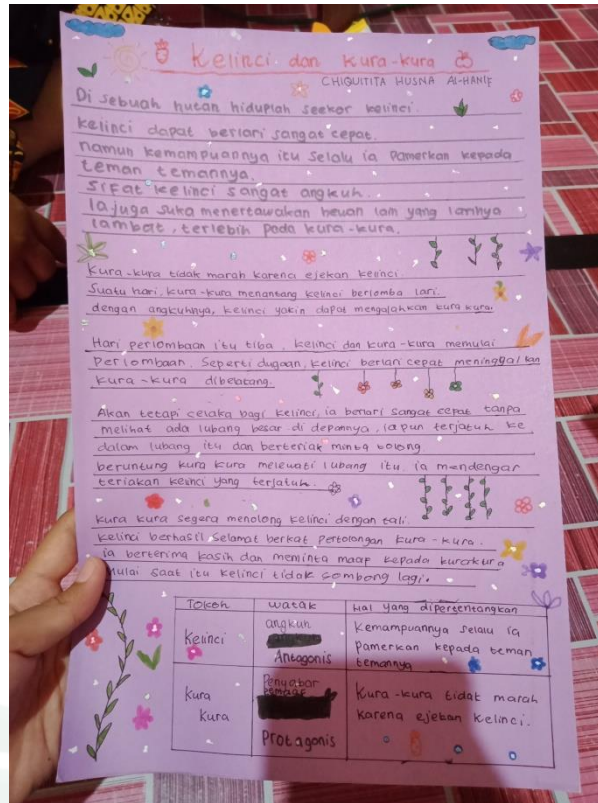 Kelinci dan Kura-kura
CHIQUITITA HUSNA Al-HANIF
Di sebuah hutan hiduplah seekor kelinci.
Kelinci dapat berlari sangat cepat.
namun kemampuannya itu selalu ia Pamerkan kepada
teman temannya.
Sifat kelinci sangat angkuh.
Ia juga suka menertawakan hewan lain yang larinya
lambat, terlebih pada kura-kura.
Kura-kura tidak marah karena ejekan kelinci.
Suatu hari, kura-kura menantang kelinci berlomba lari.
dengan angkuhnya, kelinci yakin dapat mengalahkan kura kura.
Hari perlombaan itu tiba, kelinci dan kura-kura memulai
Perlombaan. Seperti dugaan, kelinci berlari cepat meninggalkan
kura-kura dibelakang.
Akan tetapi celaka bagi kelinci, ia berlari sangat cepat tanpa
melihat ada lubang besar di depannya, ia pun terjatuh ke
dalam lubang itu dan berteriak minta tolong
beruntung kura kura melewati lubang itu. ia mendengar
teriakan kelinci yang terjatuh.
Kura kura segera menolong kelinci dengan tali.
Kelinci berhasil selamat berkat pertolongan kura-kura.
ia berterima kasih dan meminta maaf kepada kurarkura
Mulai saat itu kelinci tidak sombong lagi.
Tokoh watak Hal yang dipertentangkan
Kelinci
angkuh
Antagonis
Kemampuannya selalu ia
Pamerkan kepada teman
temannya
Kura
Kura
Penyabar
Protagonis
Kura-kura tidak marah
karena ejekan kelinci.